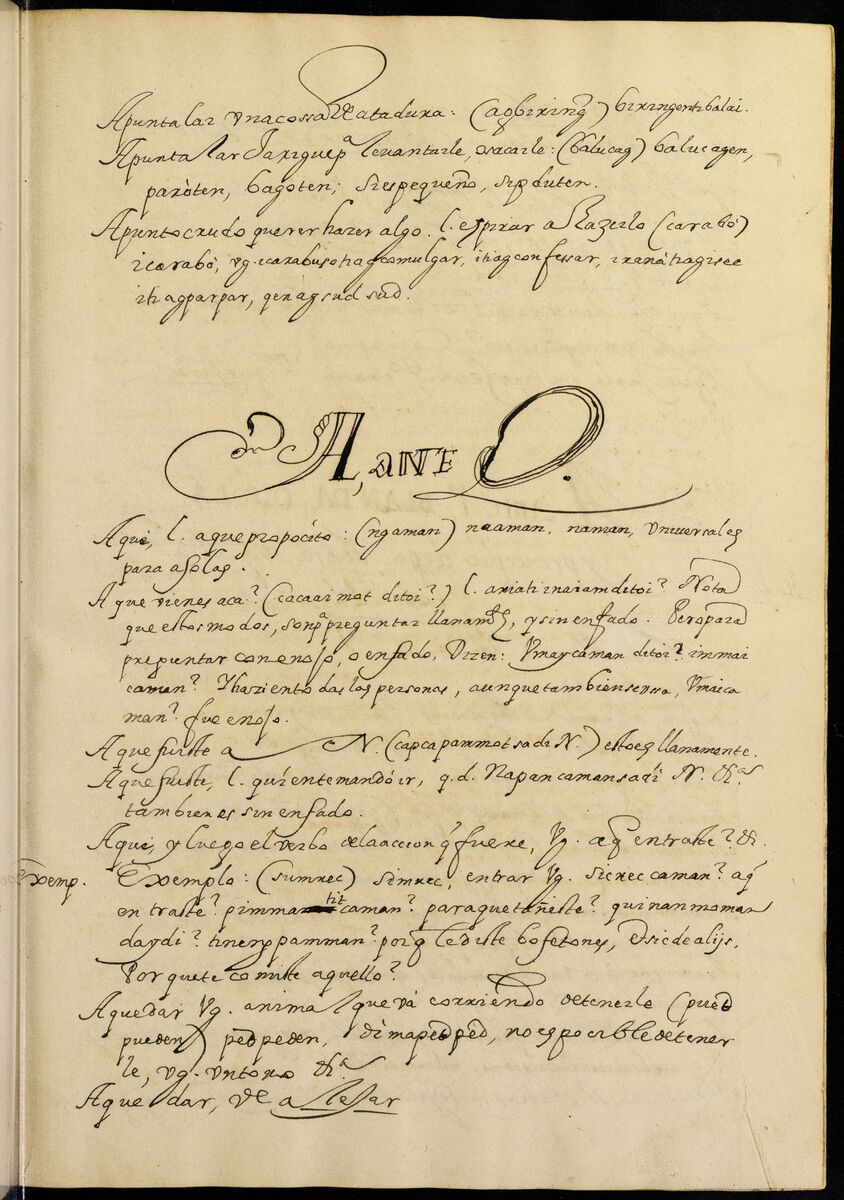 Apuntalar vna cossa de atadura: (aqbiring) biringentibalai.
Apuntalar Jarigue pª levantarle, o sacarle: (balucag) balucagen,
paròten, bagoten; si es pequeño, sipduten.
Apunto crudo querer hazer algo. l. espirar a hazerlo (carabò)
icarabò, vg. icarabuso tiag comulgar, itiag confessar,
iti agparpar, qen agsud sud.
A, ANTE Q.
A qui, l. aque propocito: (ngaman) naaman, naman, vniversales
para asolas.
A que vienes aca? (cacaai mot ditoi?) l. ariati inaiam ditoi? Nota
que estos modos, son pª preguntar llanamte, y sin enfado. Pero para
preguntar con enojo, o enfado, Dizen: Vmay caman ditoi? immai
caman? Y haziento das las personas, aunque tambien se vssa, Vmai ca
man? fue enojo.
A que fuiste a N. (capcapanmot sadi N.) esto es llanamente.
A que fuiste, l. quien te mandò ir, q.d. Napan caman sadi N. &ª
tambien es sin enfado.
A qui, y luego el verbo de la accion q fuere, Vg. aq entraste? &.
Exemp. Exemplo: (sumrec) simrec, entrar Vg. sicrec caman? aq
entraste? pimma tit caman? para que tañeste? quinanmo man
daydi? tineny pamman? por q le diste bofetones, & sic de alijs.
Por que te comiste aquello?
A quedar Vg. animal que và corriendo detenerle (pued
pueden) ped peden, di mapedped, no es possible detener
le, vg. vn toro &ª
A quedar, Ve allesar